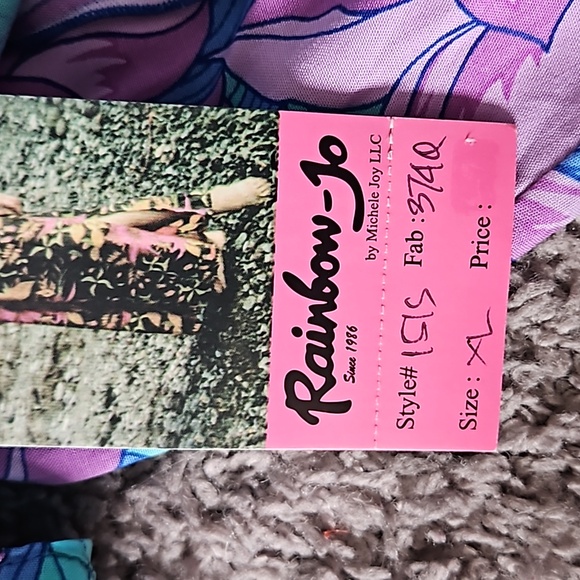 Rainbow-Jo
Since 1986
by Michele Joy LLC
Style# 1515 Fab: 374Q
Size: XL Price: